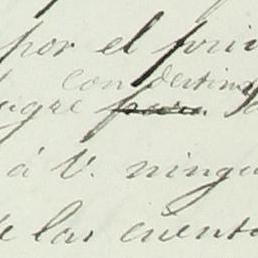 por el prin
con destino
ugre para
á V. ningu
e las cuenta